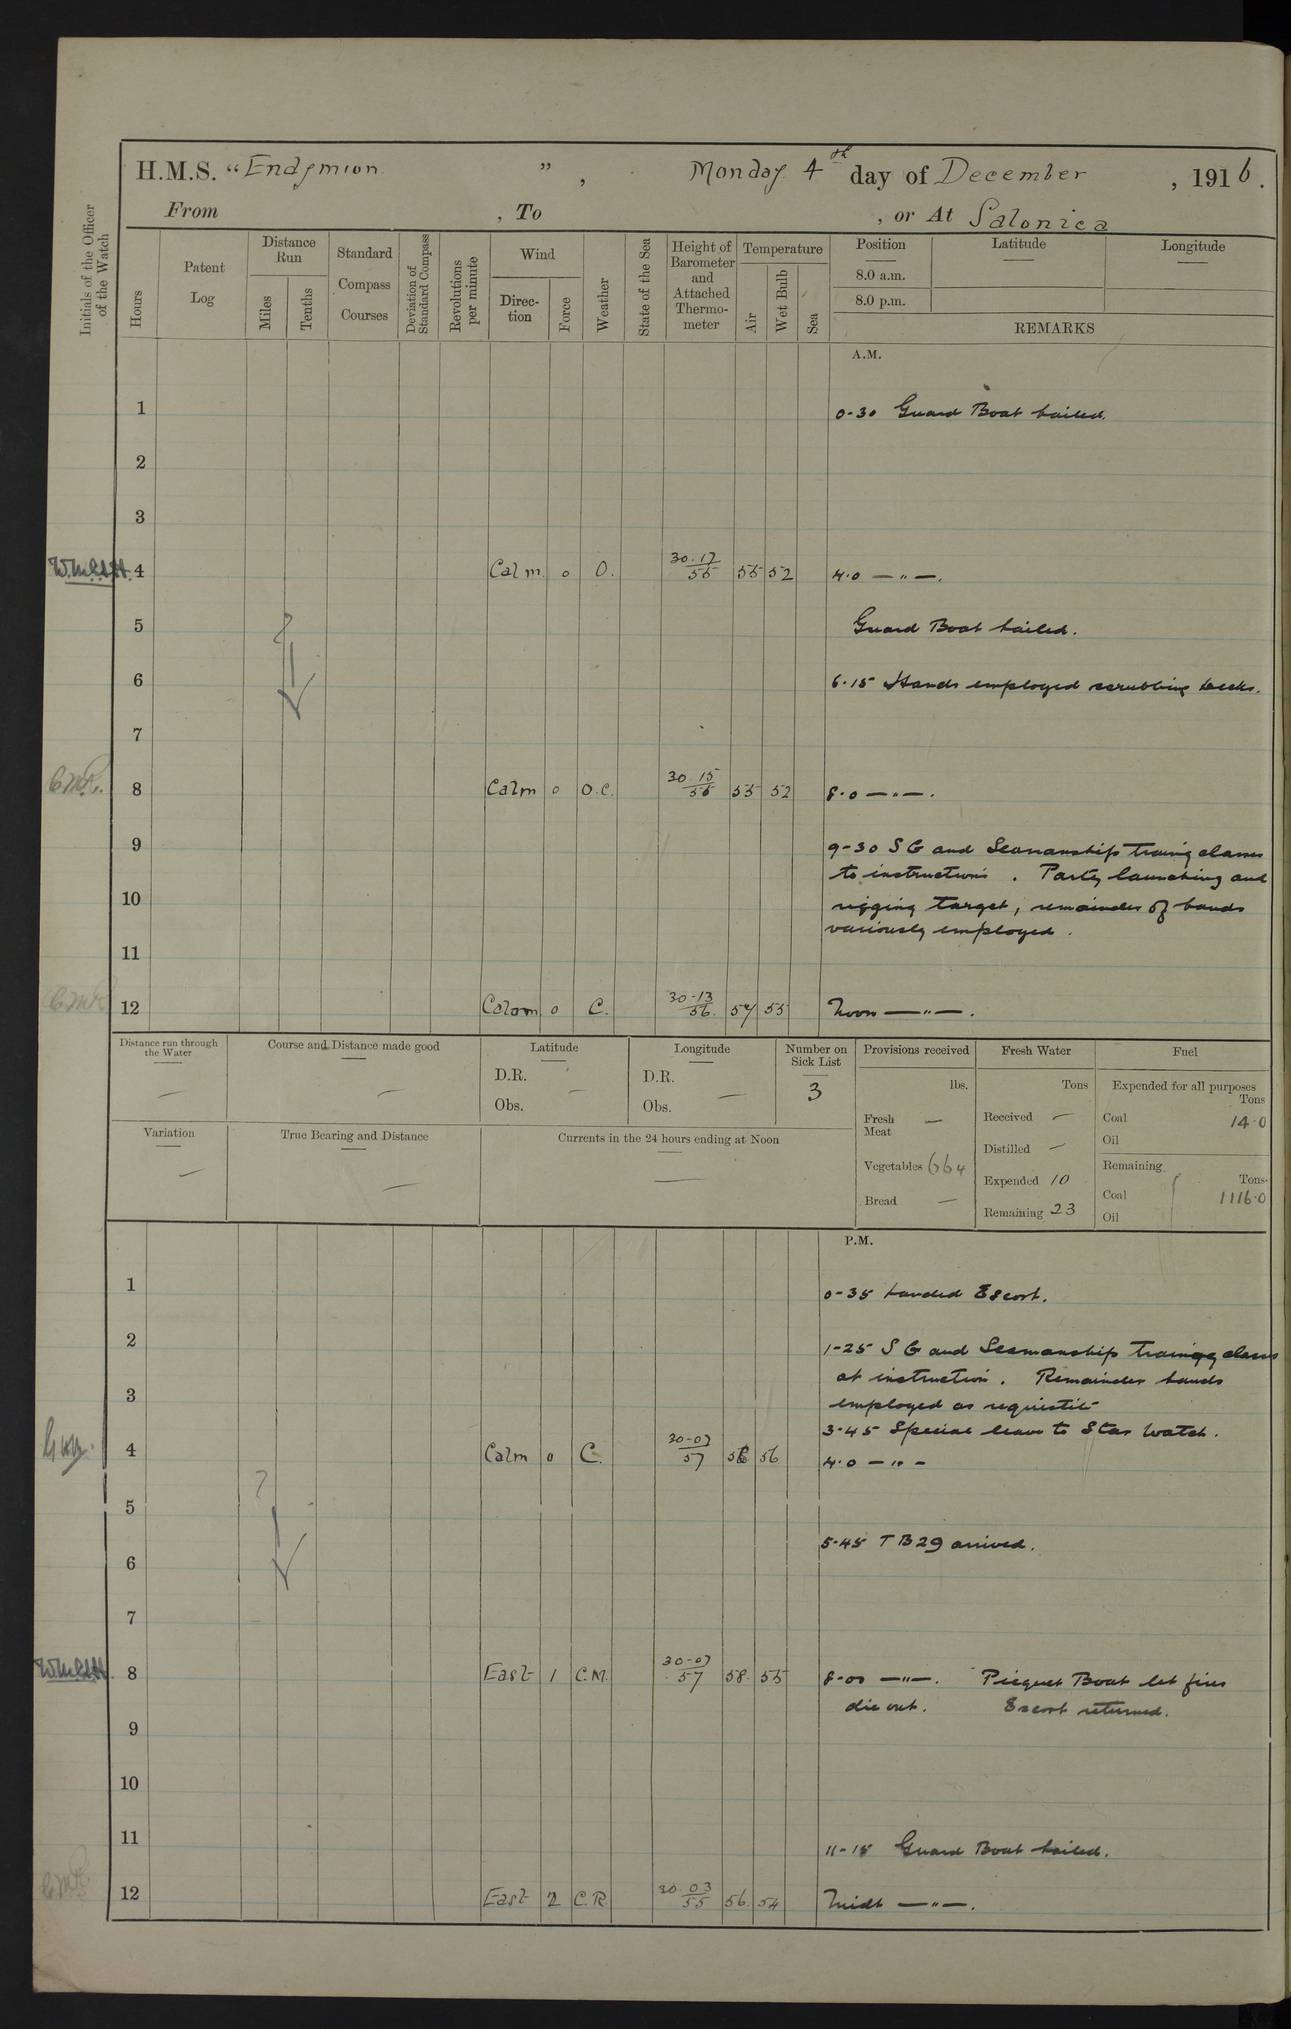 H.M.S. "Endymion", Monday 4th day of December, 1916.
From , To , or At Salonica
Initials of the Officer of the Watch
Hours
Patent Log
Distance Run
Miles
Tenths
Standard Compass Courses
Deviation of Standard Compass
Revolutions per minute
Wind
Direc-tion
Force
Weather
State of the Sea
Height of Barometer and Attached Thermo-meter
Temperature
Air
Wet Bulb
Sea
Position Latitude Longitude
8.0 a.m.
8.0 p.m.
REMARKS
A.M.
1 0-30 Guard Boat hailed.
2
3
4 Calm 0 O. 30.17/55 55 52 4.0 — " —.
5 Guard Boat hailed.
6 6.15 Hands employed scrubbing decks.
7
8 Calm 0 O.C. 30.15/55 55 52 8.0 — " —.
9 9-30 S G and Seamanship traing classes
to instructions. Party launching and
10 rigging target, remainder of hands
variously employed.
11
12 Calm 0 C. 30-13/56 57 55 Noon — " —.
Distance run through the Water —
Course and Distance made good —
Latitude
D.R. —
Obs.
Longitude
D.R. —
Obs.
Number on Sick List
3
Provisions received
lbs.
Fresh Meat —
Vegetables 664
Bread —
Fresh Water
Tons
Received —
Distilled —
Expended 10
Remaining 23
Fuel
Expended for all purposes
Tons
Coal 14.0
Oil
Remaining
Tons.
Coal 1116.0
Oil
Variation —
True Bearing and Distance —
Currents in the 24 hours ending at Noon —
P.M.
1 0-35 Landed Escort.
2 1-25 S G and Seamanship training class
at instruction. Remainder hands
3 employed as requisite
3.45 Special leave to Star Watch.
4 Calm 0 C. 30-07/57 56 4.0 — " —
5 ?
5.45 T B 29 arrived.
6
7
8 East 1 C.M. 30-07/57 58 55 8-00 — " —. Picquet Boat let fires
die out. Escort returned.
9
10
11 11-15 Guard Boat hailed.
12 East 2 C.R. 30.03/55 56 54 Midt — " —.